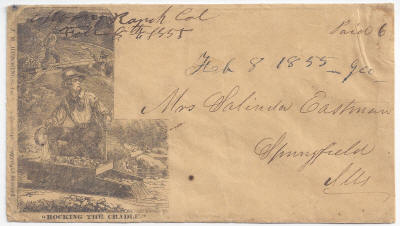 Ranch Cal
Feb 8th 1855
Paid 6
Feb 8 1855
Mrs Salinda Eastman
Springfield
Ills
"ROCKING THE CRADLE."